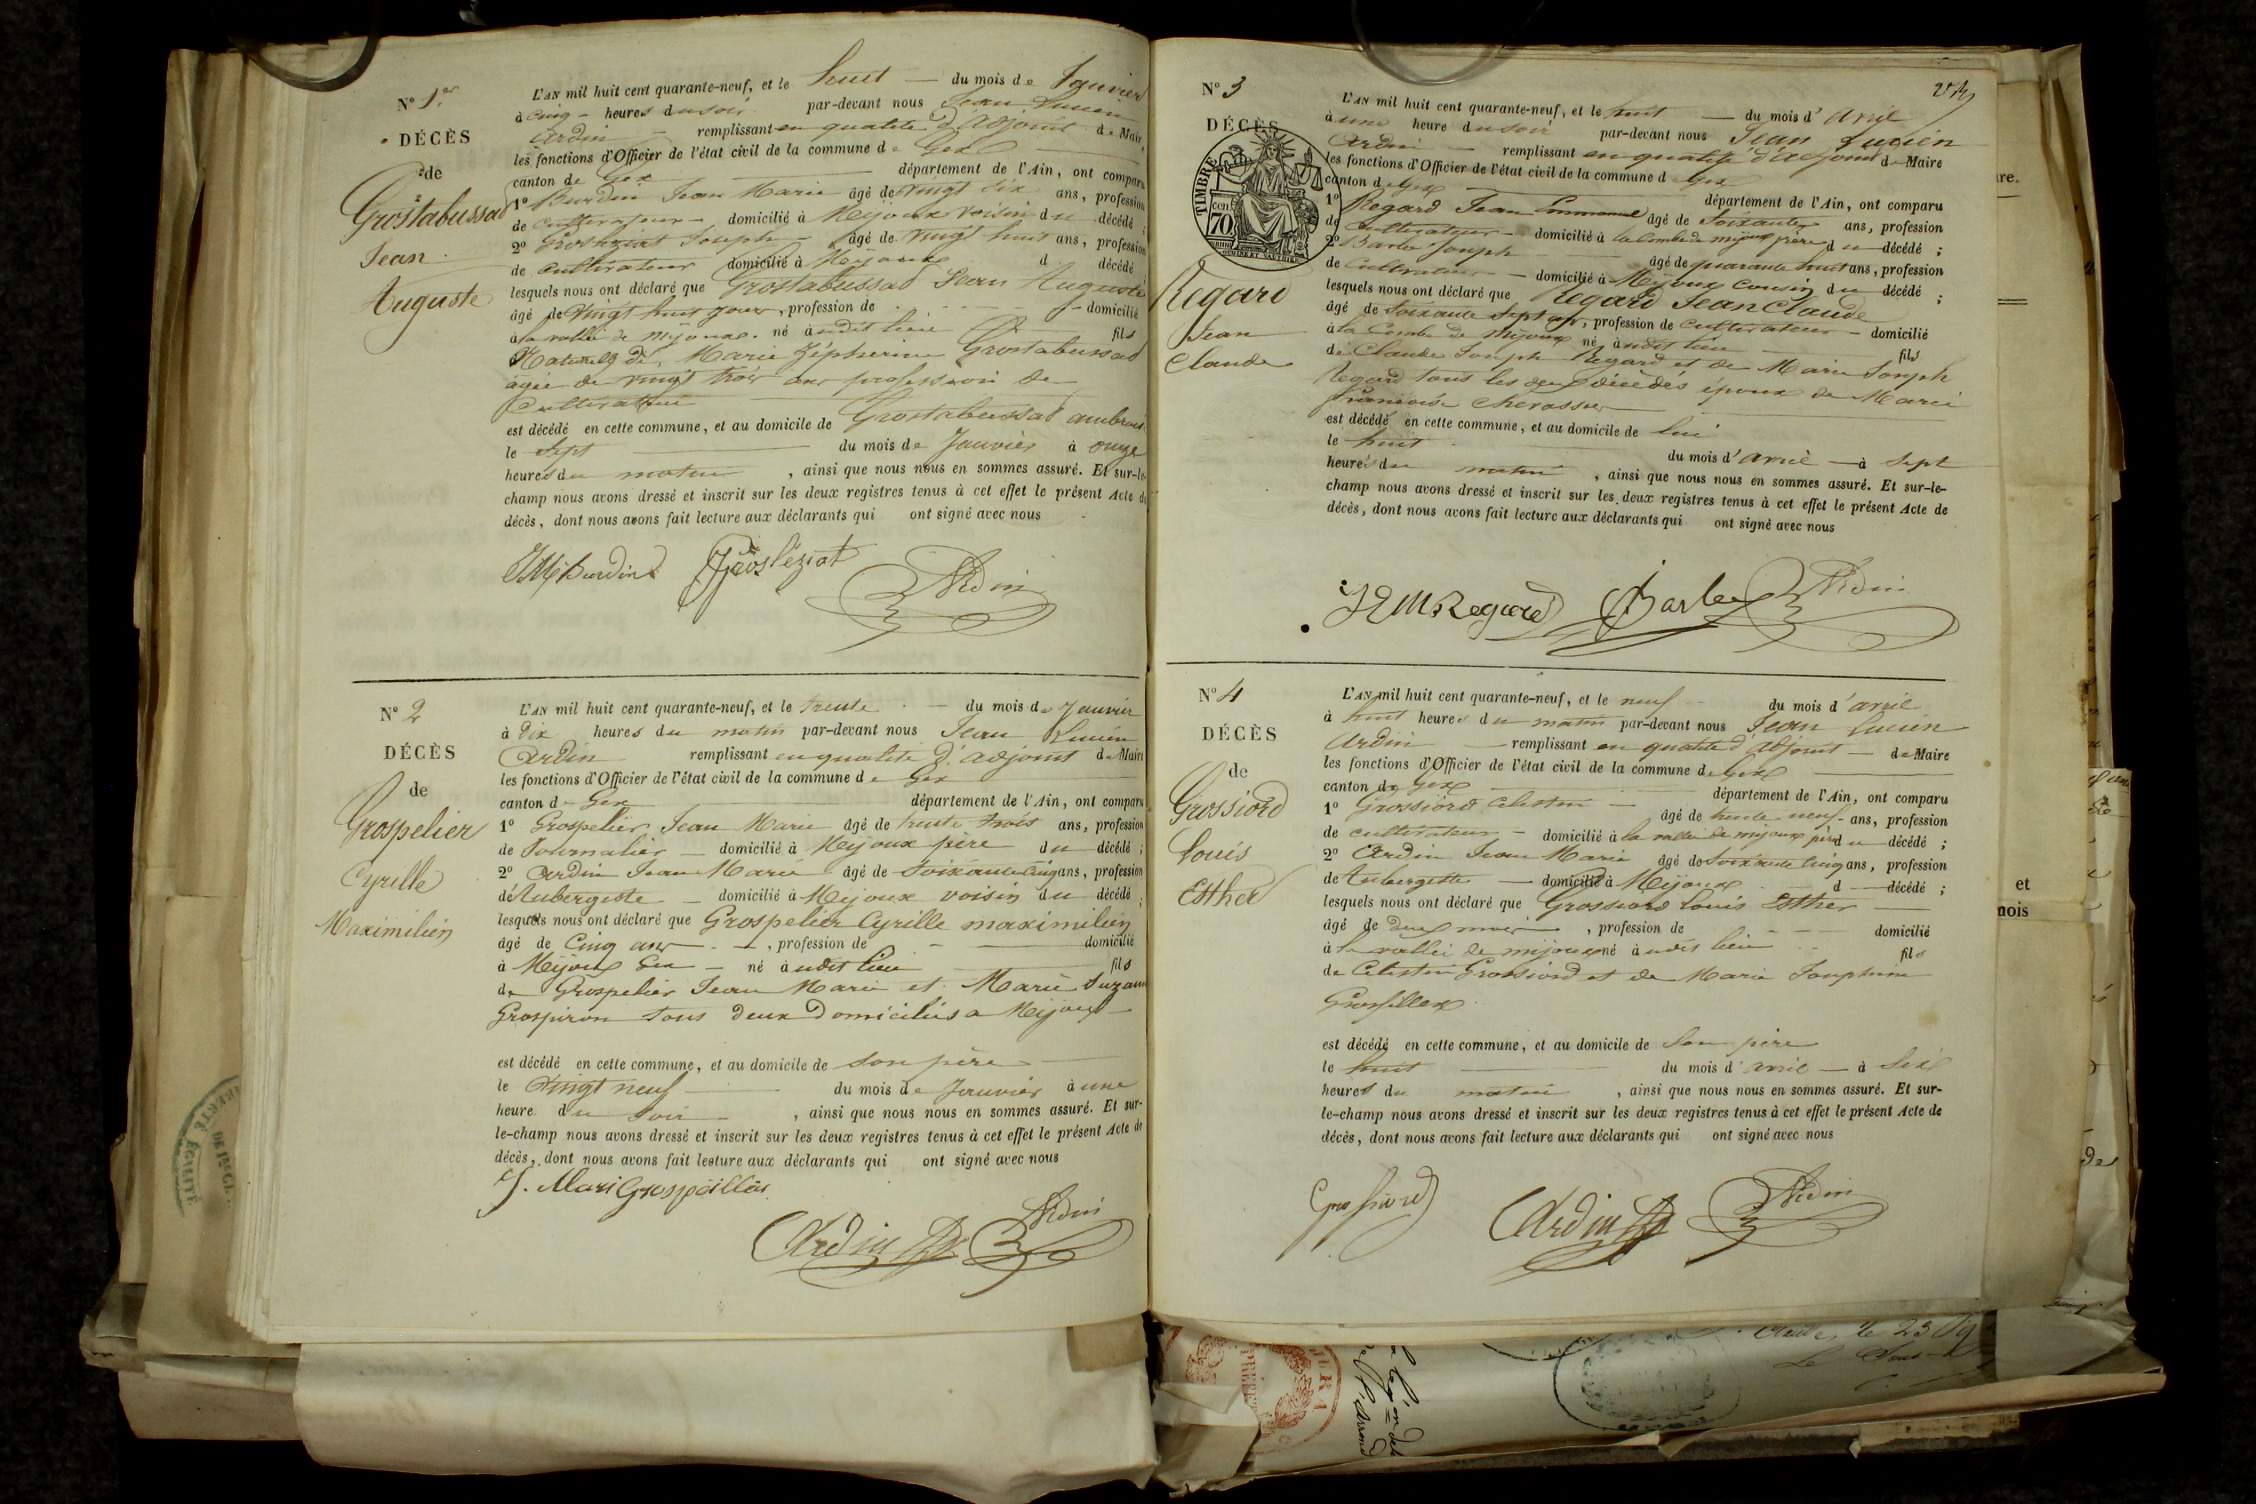 N° 1.er
DÉCÈS
de
Grostabussad
Jean
Auguste
L'AN mil huit cent quarante-neuf, et le huit du mois de Janvier
à cinq heures du soir par-devant nous Jean Lucien
Ardin remplissant en qualité d'adjoint de Maire
les fonctions d'Officier de l'état civil de la commune de Gex
canton de Gex département de l'Ain, ont comparu
1° Burdin Jean Marie âgé de vingt six ans, profession
de cultivateur domicilié à Mijoux voisin du décédé ;
2° Grosléziat Joseph âgé de vingt huit ans, profession
de cultivateur domicilié à Mijoux d décédé
lesquels nous ont déclaré que Grostabussad Jean Auguste
âgé de vingt huit jour, profession de domicilié
à la vallée de mijoux. né à udit lieu fils
Naturelle de Marie Zépherine Grostabussad
âgée de vingt trois ans profession de
Cultivateur
est décédé en cette commune, et au domicile de Grostabussad ambroise
le sept du mois de Janvier à onze
heures du matin, ainsi que nous nous en sommes assuré. Et sur-le-
champ nous avons dressé et inscrit sur les deux registres tenus à cet effet le présent Acte de
décès, dont nous avons fait lecture aux déclarants qui ont signé avec nous
JM Burdin J Grosléziat Ardin
N° 2
DÉCÈS
de
Grospelier
Cyrille
Maximilien
L'AN mil huit cent quarante-neuf, et le trente du mois de Janvier
à dix heures du matin par-devant nous Jean Lucien
Ardin remplissant en qualité d'adjoint de Maire
les fonctions d'Officier de l'état civil de la commune de Gex
canton de Gex département de l'Ain, ont comparu
1° Grospelier Jean Marie âgé de trente trois ans, profession
de Journalier domicilié à Mijoux père du décédé ;
2° Ardin Jean Marie âgé de soixante cinq ans, profession
de Aubergiste domicilié à Mijoux voisin du décédé ;
lesquels nous ont déclaré que Grospelier Cyrille maximilien
âgé de Cinq ans, profession de domicilié
à Mijoux Gex né à udit lieu fils
de Grospelier Jean Marie et Marie Suzane
Grospiron tous deux Domiciliés a Mijoux
est décédé en cette commune, et au domicile de son père
le Vingt neuf du mois de Janvier à une
heure du soir, ainsi que nous nous en sommes assuré. Et sur-
le-champ nous avons dressé et inscrit sur les deux registres tenus à cet effet le présent Acte de
décès, dont nous avons fait lecture aux déclarants qui ont signé avec nous
J. Mari Grospellier
Ardin Ardin
N° 3
DÉCÈS
TIMBRE
70
cen.
Regard
Jean
Claude
L'AN mil huit cent quarante-neuf, et le huit du mois d'avril
à une heure du soir par-devant nous Jean Lucien
Ardin remplissant en qualité d'adjoint de Maire
les fonctions d'Officier de l'état civil de la commune d Gex
canton de Gex département de l'Ain, ont comparu
1° Regard Jean Emmanuel âgé de soixante ans, profession
de Cultivateur domicilié à la Combe de mijoux frère du décédé ;
2° Barbe Joseph âgé de quarante huit ans, profession
de Cultivateur domicilié à Mijoux Cousin du décédé ;
lesquels nous ont déclaré que Regard Jean Claude
âgé de soixante sept ans, profession de cultivateur domicilié
à la Combe de Mijoux né à udit lieu fils
de Claude Joseph Regard et de Marie Joseph
Regard tous les deux décédés époux de Marie
françoise Chevassus
est décédé en cette commune, et au domicile de lui
le huit du mois d'avril à sept
heures du matin, ainsi que nous nous en sommes assuré. Et sur-le-
champ nous avons dressé et inscrit sur les deux registres tenus à cet effet le présent Acte de
décès, dont nous avons fait lecture aux déclarants qui ont signé avec nous
JEM Regard Barbe Ardin
N° 4
DÉCÈS
de
Grossiord
Louis
Esther
L'AN mil huit cent quarante-neuf, et le neuf du mois d'avril
à huit heures du matin par-devant nous Jean Lucien
Ardin remplissant en qualité d'adjoint de Maire
les fonctions d'Officier de l'état civil de la commune de Gex
canton de Gex département de l'Ain, ont comparu
1° Grossiord Celestin âgé de trente neuf ans, profession
de cultivateur domicilié à la vallée de mijoux père du décédé ;
2° Ardin Jean Marie âgé de soixante cinq ans, profession
de Aubergiste domicilié à Mijoux d décédé ;
lesquels nous ont déclaré que Grossiord Louis Esther
âgé de deux mois, profession de domicilié
à la vallée de mijoux né à udit lieu fils
de Celestin Grossiord et de Marie Josephine
Grosfillex
est décédé en cette commune, et au domicile de son père
le huit du mois d'avril à six
heures du matin, ainsi que nous nous en sommes assuré. Et sur-
le-champ nous avons dressé et inscrit sur les deux registres tenus à cet effet le présent Acte de
décès, dont nous avons fait lecture aux déclarants qui ont signé avec nous
Grossiord Ardin Ardin
re.
et
mois
ÉGALITÉ
JURA
le 23